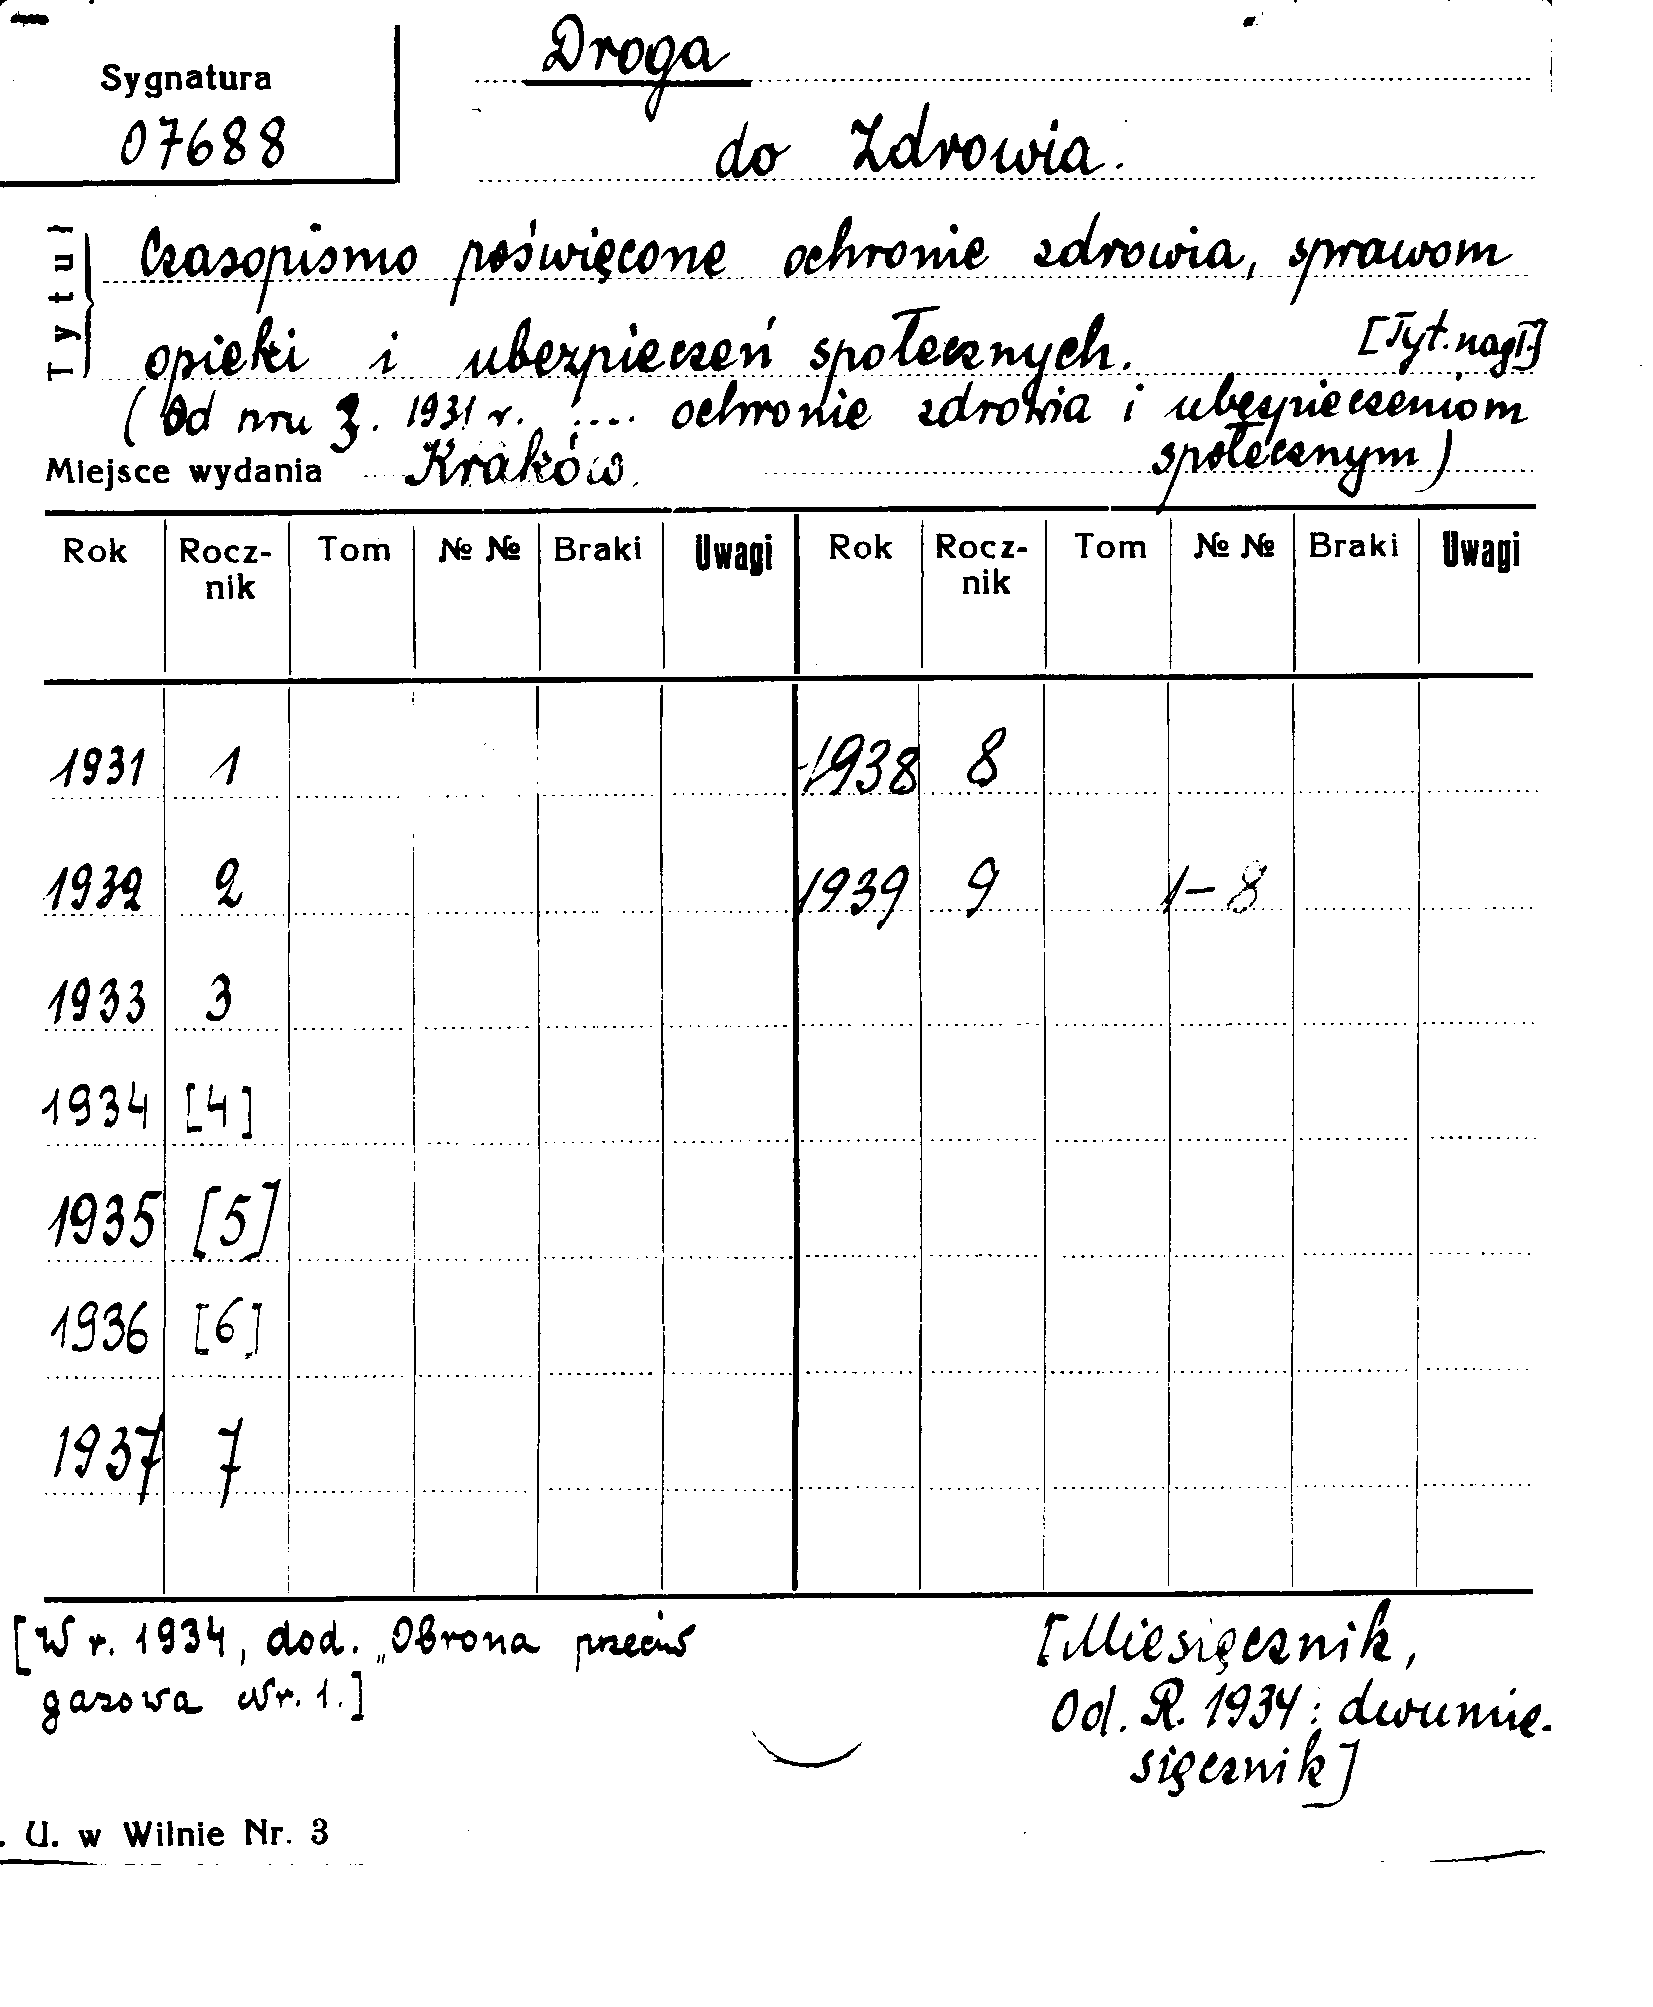 Sygnatura
07688
Droga
do Zdrowia.
Tytuł
Czasopismo poświęcone ochronie zdrowia, sprawom
opieki i ubezpieczeń społecznych. [Tyt. nagł.]
(Od nru 3. 1931 r. .... ochronie zdrowia i ubezpieczeniom
społecznym)
Miejsce wydania Kraków.
Rok Rocz-nik Tom № № Braki Uwagi Rok Rocz-nik Tom № № Braki Uwagi
1931 1 1938 8
1932 2 1939 9 1-8
1933 3
1934 [4]
1935 [5]
1936 [6]
1937 7
[W r. 1934, dod. „Obrona przeciw
gazowa Nr. 1.]
[Miesięcznik,
Od. R. 1934: dwumie-
sięcznik]
. U. w Wilnie Nr. 3